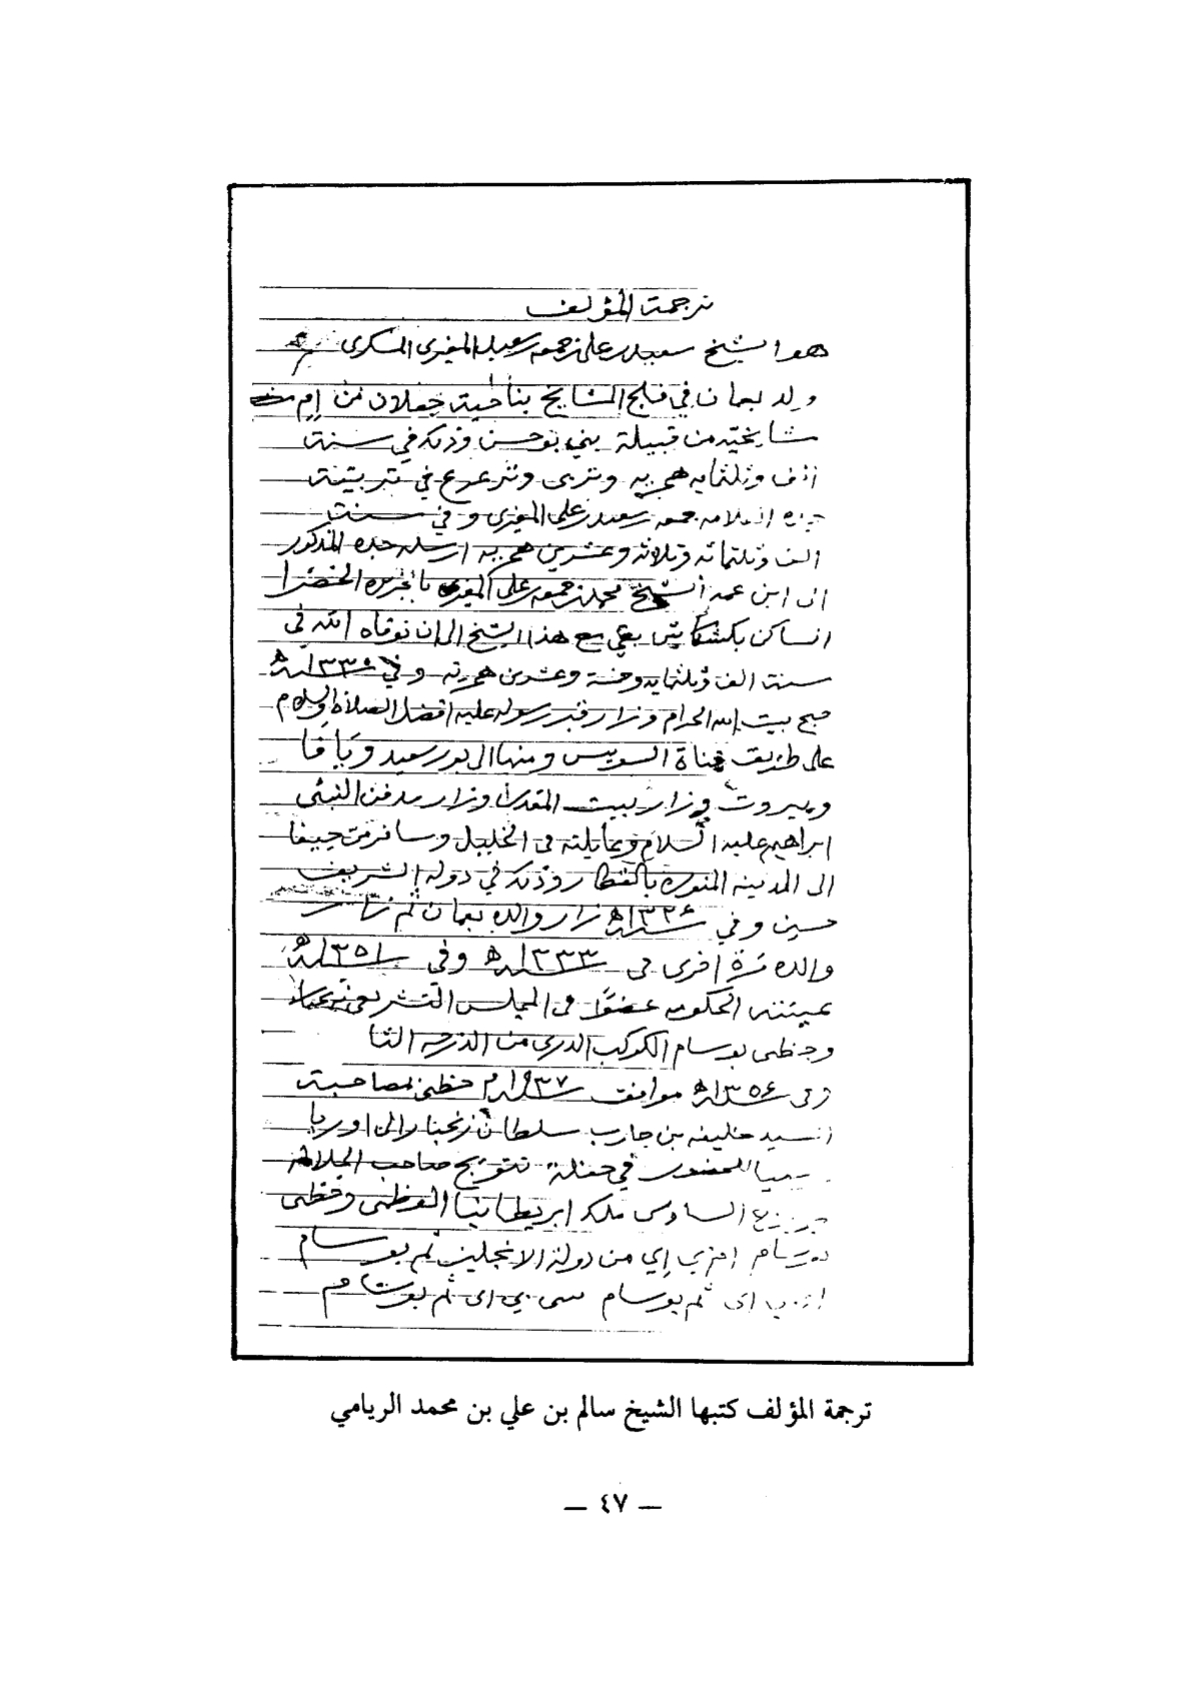 ترجمة المؤلف
هو الشيخ سعيد بن علي بن جمعه بن سعيد المغيرى المسكرى
ولد بعمان في فلج المشايخ بناحية جعلان من ام
مشايخيه من قبيلة بني بو حسن وذلك في سنة
الف وثلثمايه هجريه وتربى وترعرع في تربيته
جده العلامه جمعه بن سعيد بن علي المغيرى وفي سنت
الف وثلثمائه وثلاثه وعشرين هجريه ارسله جده المذكور
الى ابن عمه الشيخ محمد بن جمعه بن علي المغيرى بالجزيره الخضرا
الساكن بكشكاش بقي مع هذا الشيخ الى ان توفاه الله في
سنت الف وثلثمايه وخمسة وعشرين هجريه وفي
حج بيت الله الحرام وزار قبر رسوله عليه افضل الصلاة والسلام
على طريق قناة السويس ومنها الى بور سعيد ويافا
وبيروت وزار بيت المقدس وزار مدفن النبي
ابراهيم عليه السلام وعايلته في الخليل وسافر من حيفا
الى المدينه المنوره بالقطار وذلك في دولة الشريف
حسين وفي سنة ١٣٢٦ه زار والده بعمان ثم زار
والده مرة اخرى في سنة ١٣٣٣ه وفي سنة ١٣٥١ه
عينته الحكومه عضوًا في المجلس التشريعي بزنجبار
وحظى بوسام الكوكب الدرى من الدرجه الثا
وفي سنة ١٣٥٦ه موافق سنة ١٩٣٧م حظى بمصاحبة
السيد خليفه بن حارب سلطان زنجبار الى اوربا
لحضور في حفلة تتويج صاحب الجلالة
جورج السادس ملك ابريطانيا العظمى وحظى
بوسام ام بي إي من دولة الانجليز ثم بوسام
او بي اى ثم بوسام سى بي اى ثم بوسام
ترجمة المؤلف كتبها الشيخ سالم بن علي بن محمد الريامي
— ٤٧ —